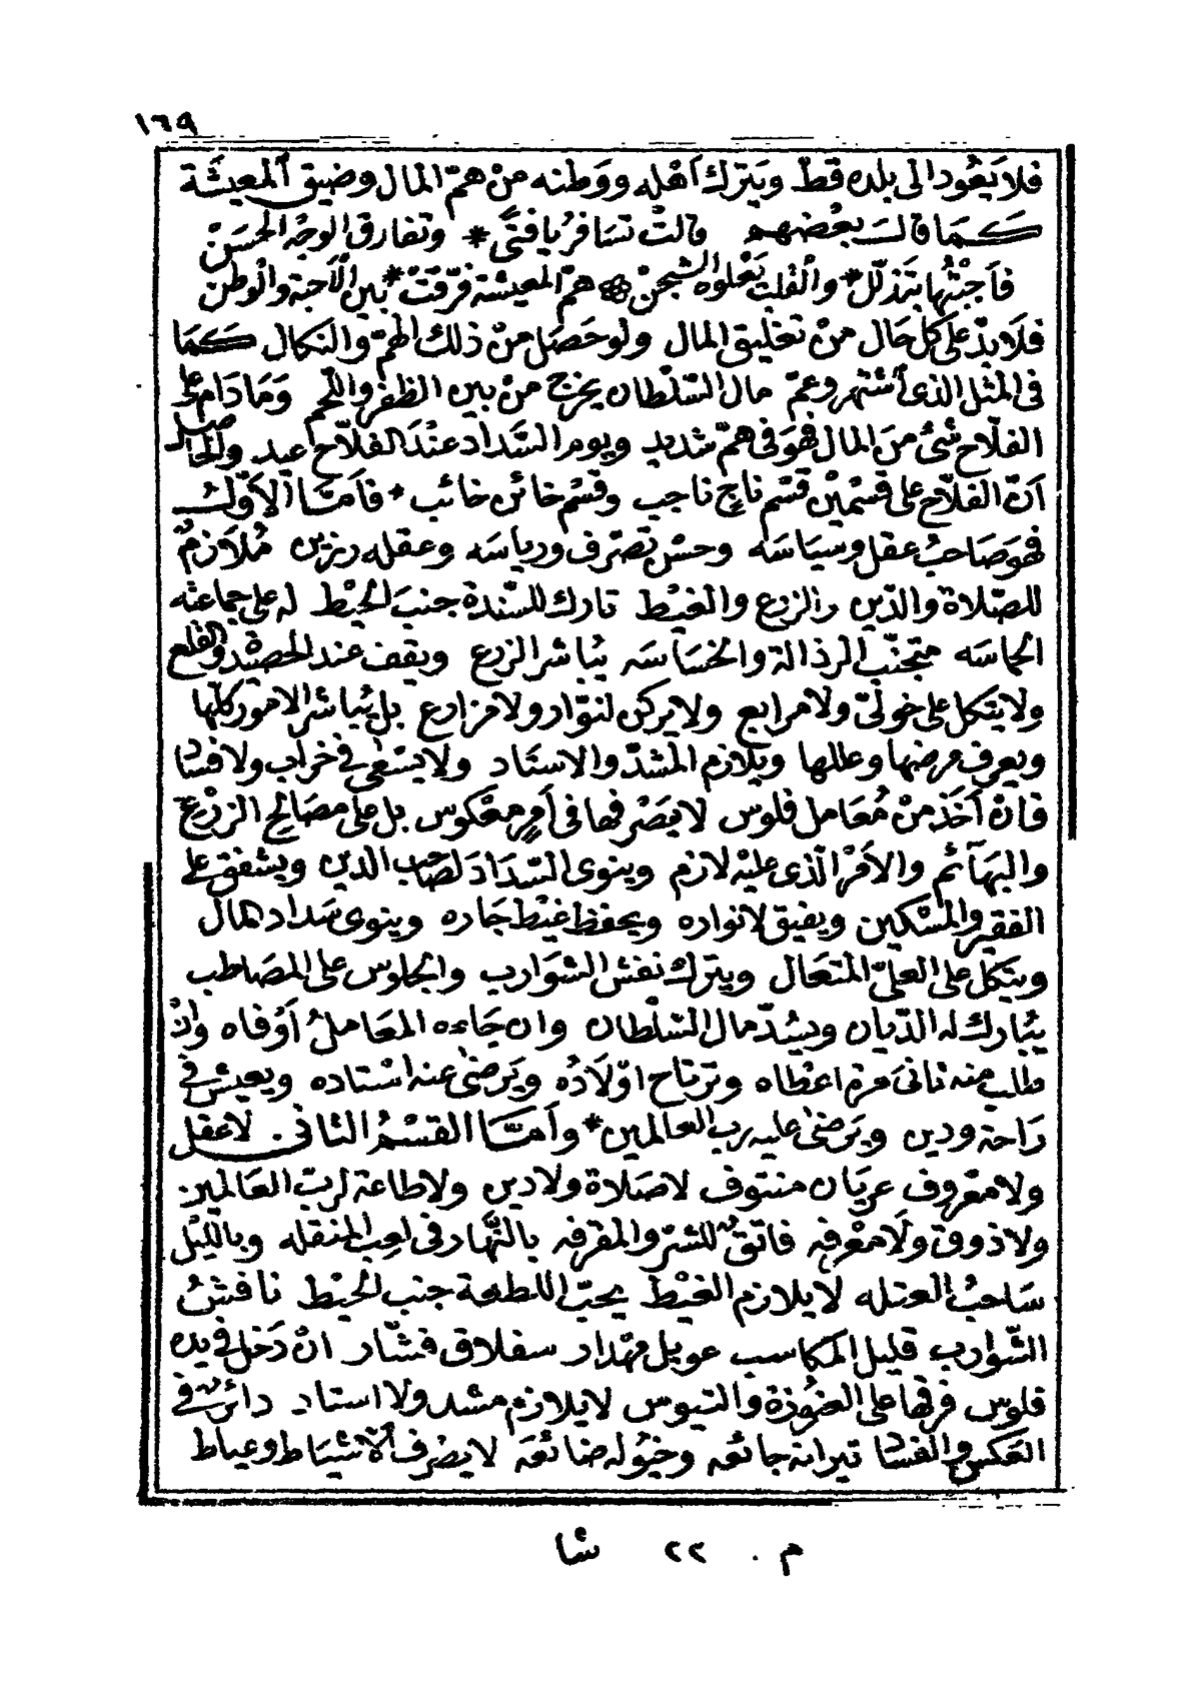 ١٦٩
فلا يَعُود الى بلده قط ويَترك اَهْله ووَطنه منْ همّ المال وضيق اَلمعيشَة
كَمَا قالَ بعْضهم قالتْ تسَافرُ يا فتىً * وتفارق الوجْه الحسَنْ
فاَجبْتُها بتَذلّل * والْقلب يَعْلوه الشجنْ هَمّ المعيشة فرّقتْ * بين الْاَحبة والْوطن
فلَا بدّ على كل حَال منْ تغليق المال ولو حَصَل منْ ذلك الهمّ والنكال كَمَا
فى المثل الذى اَشتهر وعمّ مال السّلْطان يخرج منْ بين الظفر واللحم وَمَا دَام على
الفلّاح شئُ منَ المال فهوَ فى همّ شديد ويوم السَّداد عنْدَ الفلّاح عيد والحاصل
اَنّ الفلّاح على قسْميْن قسْم ناجٍ ناجب وقسْم خائن خائب * فاَمَّا اَلاَوّل
فهوَ صَاحبُ عقل وسيَاسَه وحسْن تصَرّف ورياسَه وعقله رزين مُلاَزمٌ
للصّلاة والدّين والزرع والغيْط تارك للسّندة جنبَ الحيْط له على جماعته
الحماسَه متجنّب الرذالة والخسَاسَه يُباشر الزرع ويقف عند الحصيْد والقلع
ولا يتكل على خولىّ ولا مرابع ولا يركن لنوّار ولا مزارع بل يُباشرُ الامور كلّها
ويعرف مرضها وعللها ويُلازم المشدّ والاستَاد ولا يسْعىٰ فى خراب ولا فسَاد
فانْ اَخَذ منْ مُعَامل فلوس لا يَصْرفها فى اَمرٍ معْكوس بل على مصَالح الزرْع
والبهَآئم والاَمْر الّذى عليْه لازم وينوى السّدَادَ لصَاحب الدين ويشفق على
الفقير والمسْكين ويفيق لانواره ويحفظ غيْط جَاره وينوى سَداد هالمال
ويتكل على العلىّ المتعَال ويترك نفش الشوَارب والجلوس على المصَاطب
يبَارك له الدّيان ويسُدّ مال السّلْطان وان جَاءه المعَاملُ اَوْفاه وانْ
طلب منه ثانىَ مرة اعْطاه وترتاح اوْلَادُه ويَرضىٰ عنه اسْتاده ويعيش فى
رَاحة ودين ويَرضىٰ عليه رب العالمين * واَمَّا القسْمُ الثانى لا عقل
ولا معْروف عريَان منتوف لا صَلاة ولا دين ولا طاعة لربّ العَالمين
ولا ذوق ولَا معْرفه فاتق للشر والمقرفه بالنَّهار فى لعب المنقله وبالليْل
سَاحبُ العتله لَا يلازم الغيْط يحبّ اللطعة جنب الحيْط نافش
الشّوارب قليل المكاسب عويل مهْدار سفلاق فشّار انْ دَخل فى يده
فلوس فرقها على العنْوزة والتيوس لا يلازم مشد ولا استاد دائر فى
العَكس والفسَاد تيرانه جائعه وخيُوله ضائعَه لا يصْرف اَلا فى شيَاط وعياط
م . ٢٢ شا